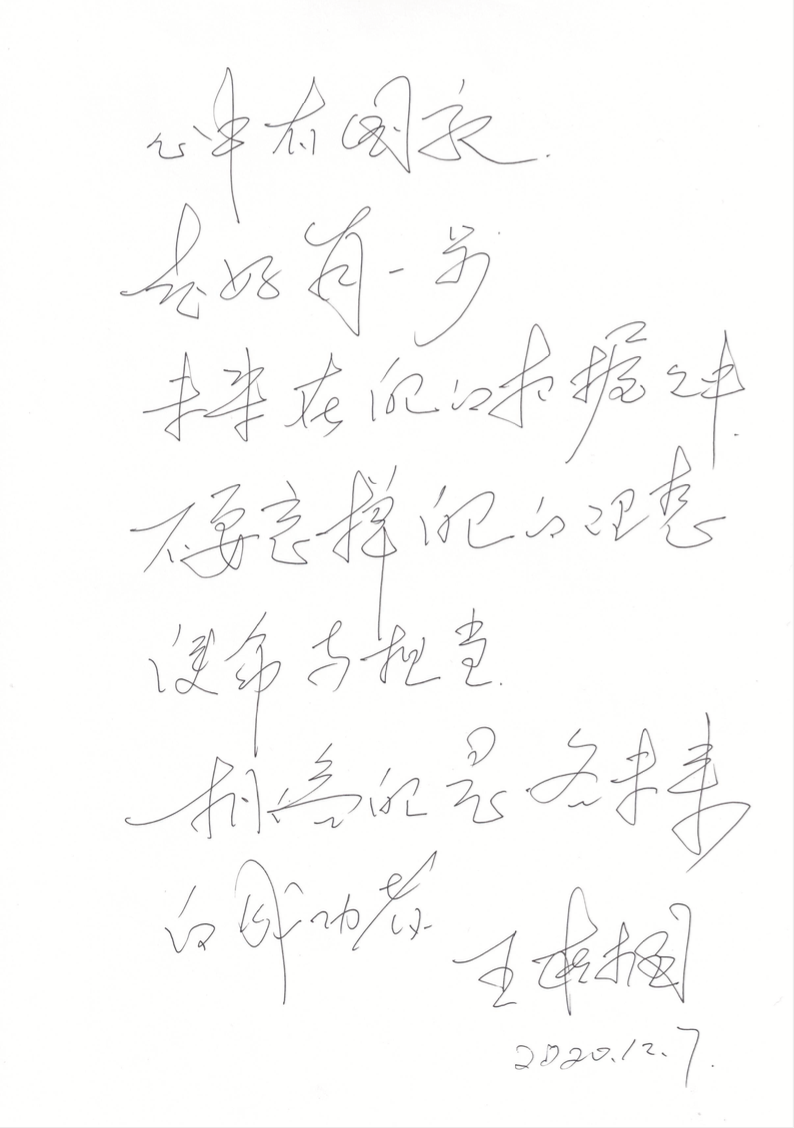 心中有国家.
走好每一步
未来在你的把握之中.
不要忘掉你的理想
使命与担当.
相信你是个未来
的成功者
王树国
2020.12.7.